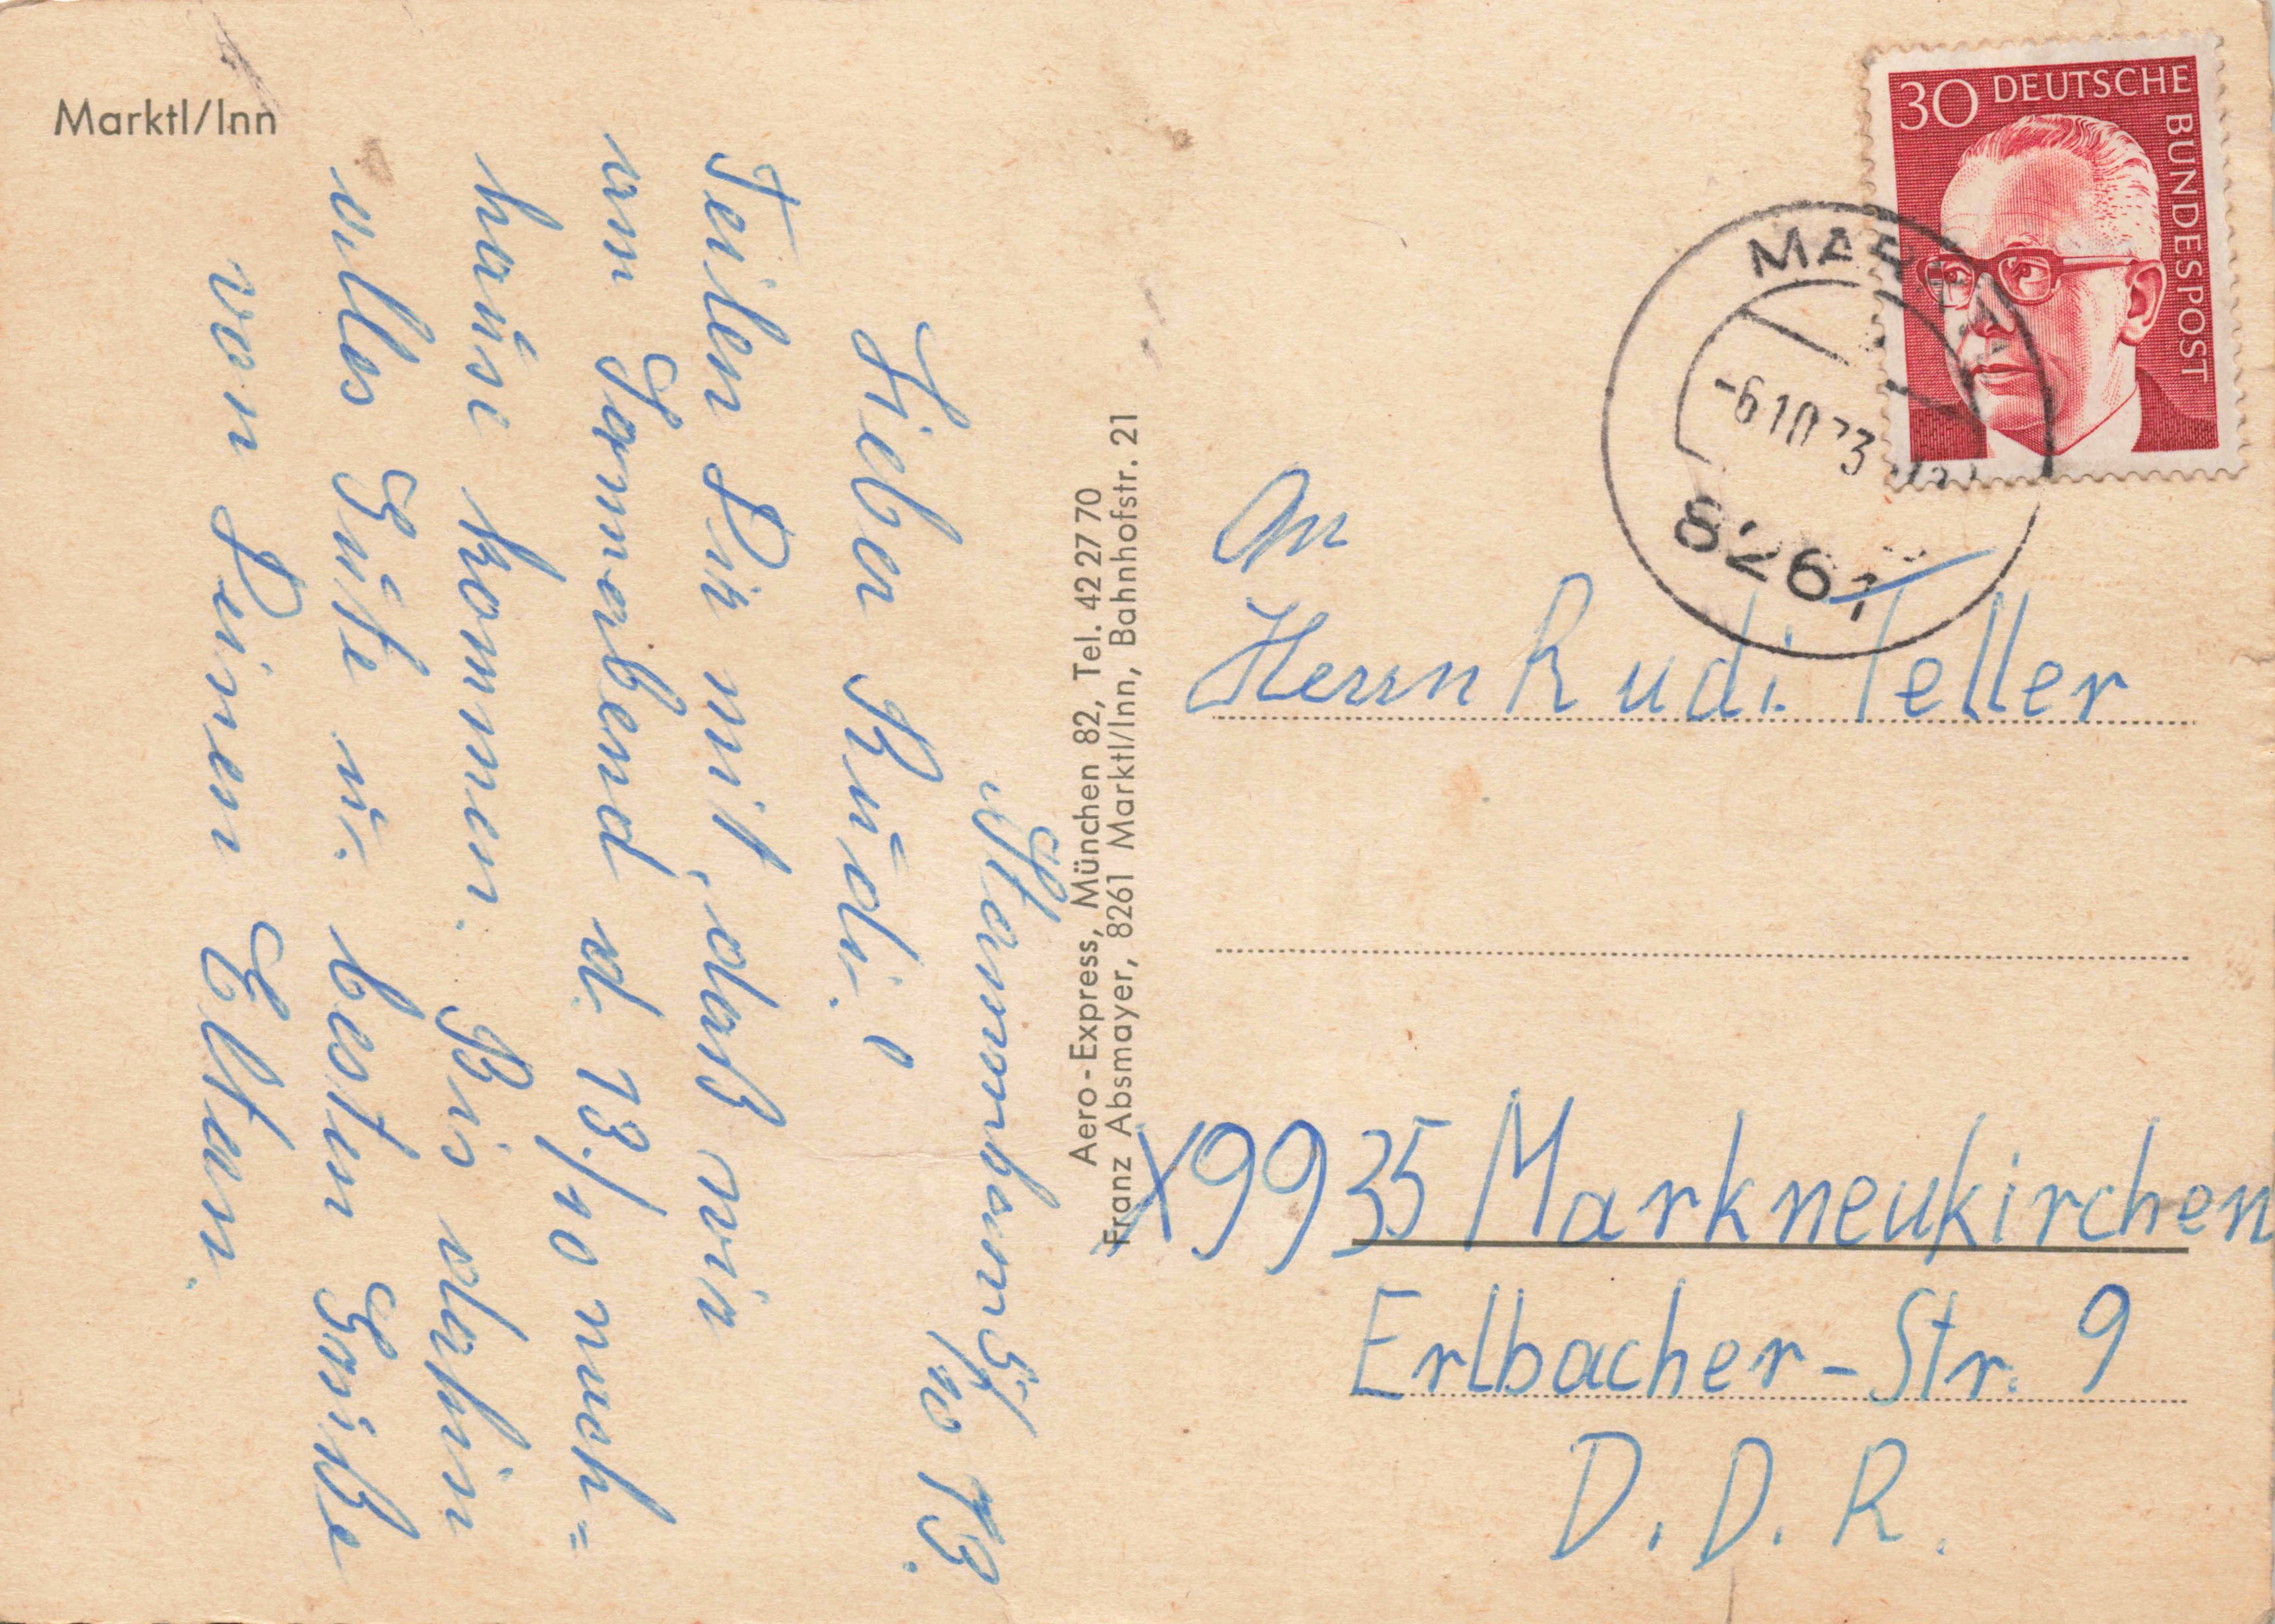 Marktl/Inn
Stammham 5/10 73.
Lieber Rudi!
Teilen Dir mit, daß wir
am Sonnabend d. 13./10 nach=
hause kommen. Bis dahin
alles Gute u. besten Grüße
von Deinen Eltern.
Aero-Express, München 82, Tel. 42 27 70
Franz Absmayer, 8261 Marktl/Inn, Bahnhofstr. 21
30 DEUTSCHE BUNDESPOST
MARKTL
-6.10.73
8261
An
Herrn Rudi Teller
X9935 Markneukirchen
Erlbacher-Str. 9
D.D.R.